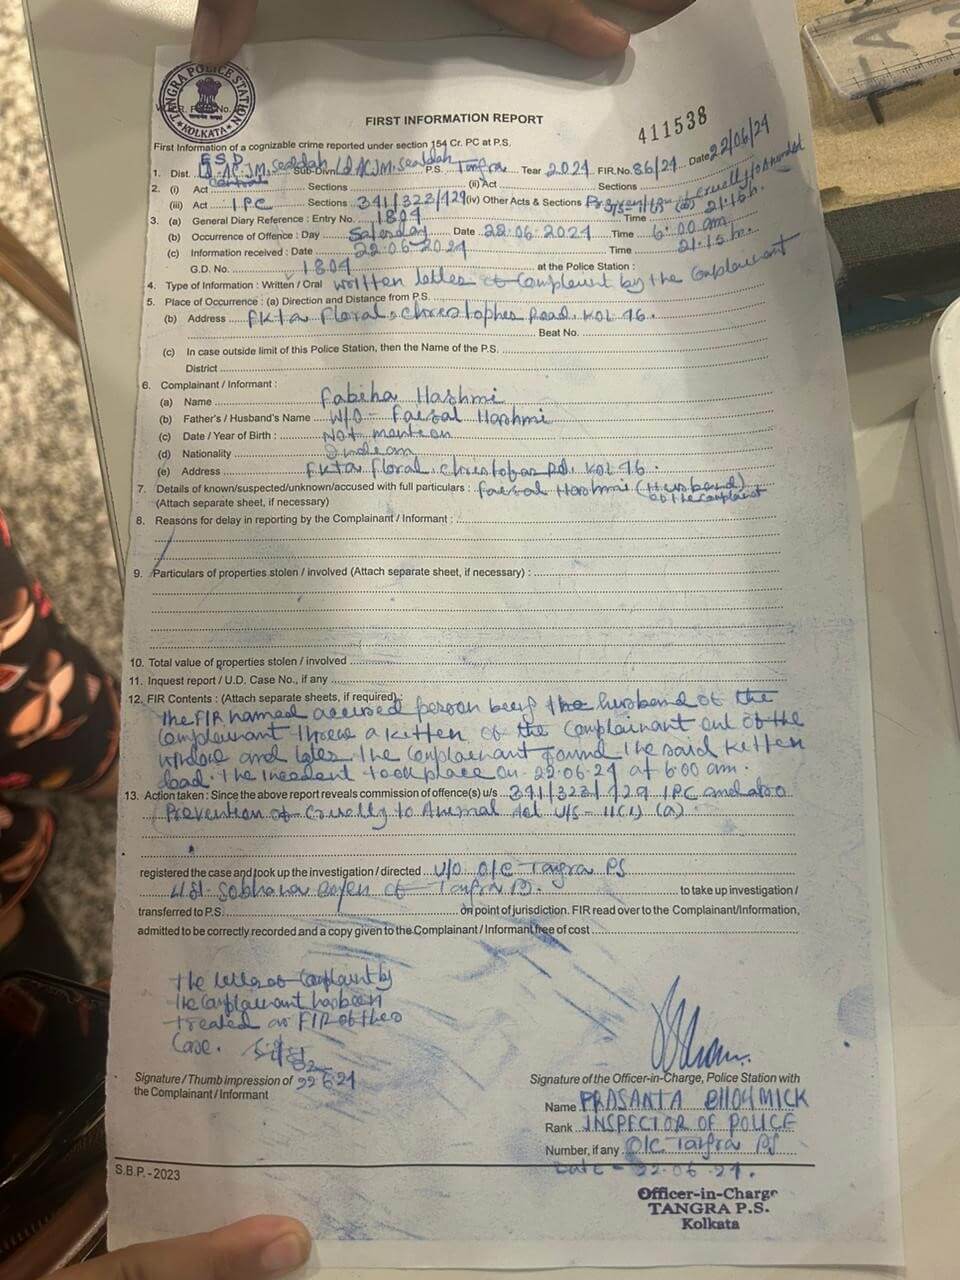 TANGRA POLICE STATION
KOLKATA
FIRST INFORMATION REPORT
411538
First Information of a cognizable crime reported under section 154 Cr. PC at P.S.
ESD
1. Dist. Ld. ACJM, Sealdah Sub-Divn. Ld ACJM Sealdah P.S. Tangra Year 2024 FIR.No. 86/24 Date 22/06/24
2. (i) Act Sections (ii) Act Sections
(iii) Act IPC Sections 341/323/429 (iv) Other Acts & Sections Cruelty to Animal
3. (a) General Diary Reference : Entry No. 1804 Time 21.15 hr.
(b) Occurrence of Offence : Day Saterday Date 22.06.2024 Time 6.00 am
(c) Information received : Date 22.06.2024 Time 21.15 hr.
G.D. No. 1804 at the Police Station :
4. Type of Information : Written / Oral written letter of complaint by the Complainant
5. Place of Occurrence : (a) Direction and Distance from P.S.
(b) Address Ekta Floral, Christopher Road, KOL 46.
Beat No.
(c) In case outside limit of this Police Station, then the Name of the P.S.
District
6. Complainant / Informant :
(a) Name Fabiha Hashmi
(b) Father's / Husband's Name W/O - Faisal Hashmi
(c) Date / Year of Birth : Not mention
(d) Nationality Indian
(e) Address Ekta Floral, Christofar Rd. KOL 46.
7. Details of known/suspected/unknown/accused with full particulars : Faisal Hashmi (Husband)
of the complaint
(Attach separate sheet, if necessary)
8. Reasons for delay in reporting by the Complainant / Informant :
9. Particulars of properties stolen / involved (Attach separate sheet, if necessary) :
10. Total value of properties stolen / involved
11. Inquest report / U.D. Case No., if any
12. FIR Contents : (Attach separate sheets, if required) :
The FIR named accused person being the husband of the
complainant threw a kitten of the complainant out of the
window and later the complainant found the said kitten
dead. The incident took place on 22.06.24 at 6.00 am.
13. Action taken : Since the above report reveals commission of offence(s) u/s 341/323/429 IPC and also
Prevention of Cruelty to Animal Act U/S - 11(1) (a)
registered the case and took up the investigation / directed U/O O/C Tangra PS
Sobhana of Tangra PS. to take up investigation /
transferred to P.S. on point of jurisdiction. FIR read over to the Complainant/Information,
admitted to be correctly recorded and a copy given to the Complainant / Informant free of cost
The letter of Complaint by
the Complainant has been
treated as FIR of the
Case.
Signature / Thumb impression of 22.6.24
the Complainant / Informant
Signature of the Officer-in-Charge, Police Station with
Name PRASANTA BHOWMICK
Rank INSPECTOR OF POLICE
Number, if any O/C Tangra PS
Date - 22.06.24.
S.B.P.-2023
Officer-in-Charge
TANGRA P.S.
Kolkata